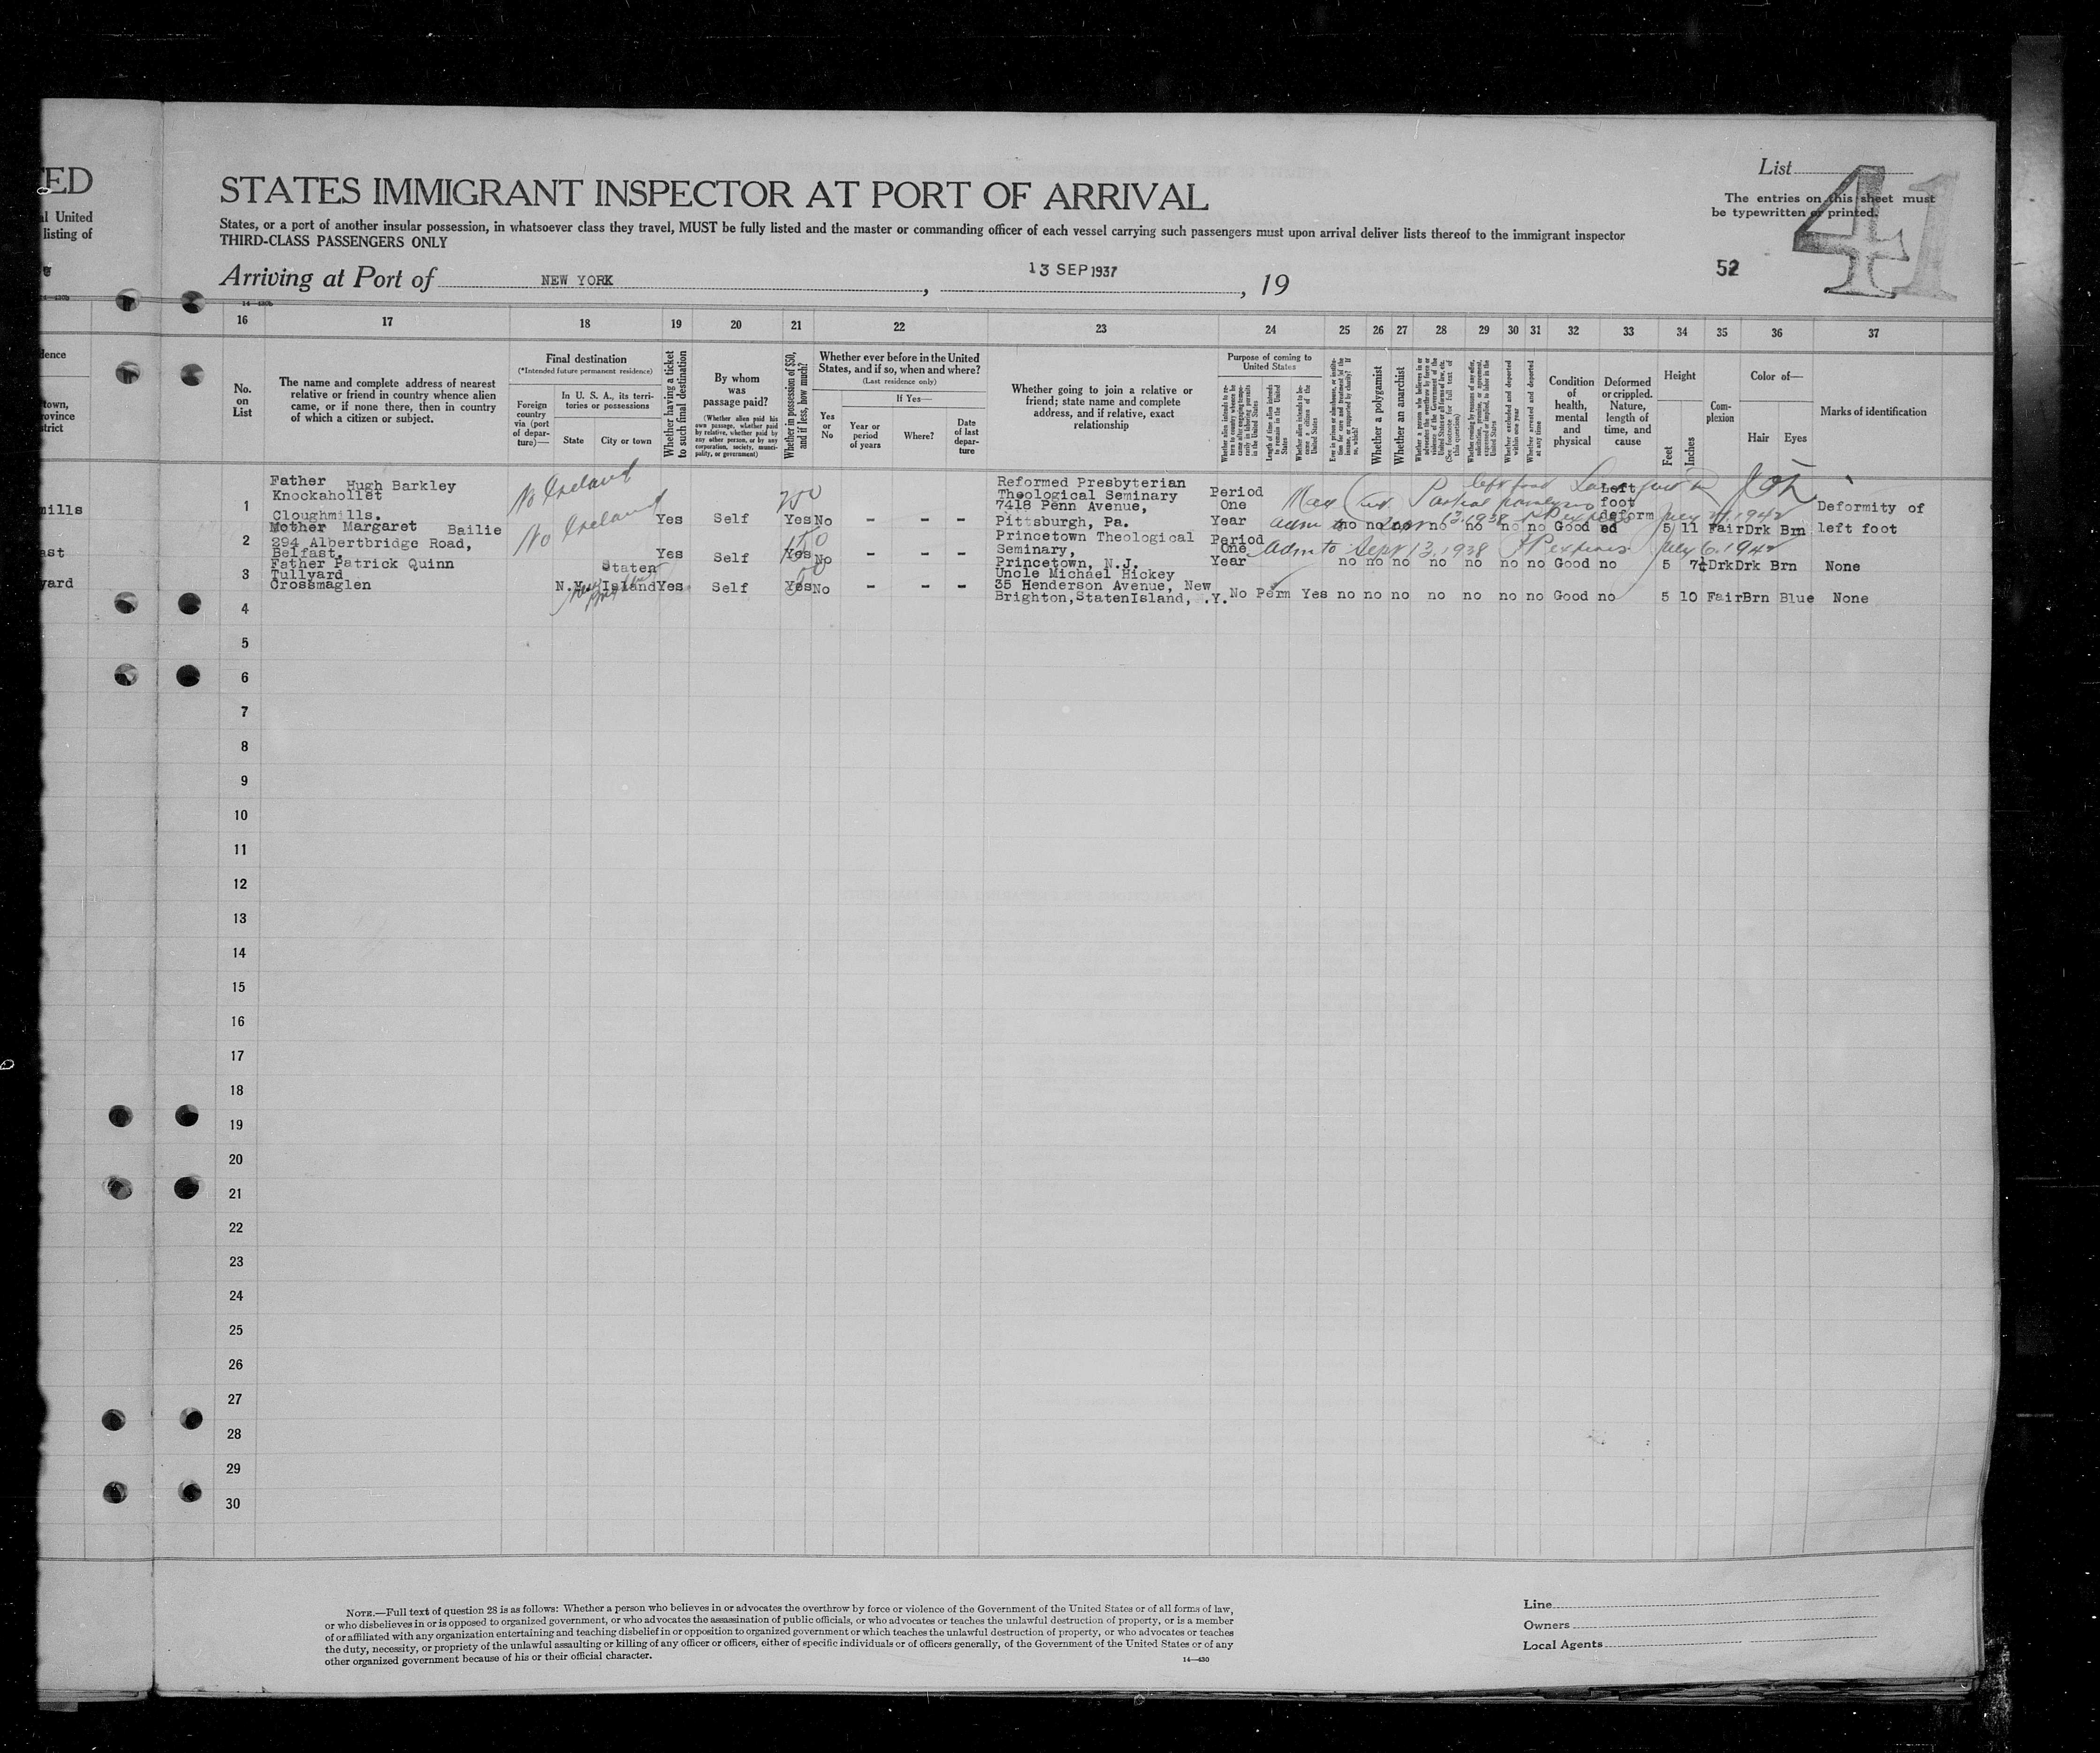 TED
al United
listing of
STATES IMMIGRANT INSPECTOR AT PORT OF ARRIVAL
States, or a port of another insular possession, in whatsoever class they travel, MUST be fully listed and the master or commanding officer of each vessel carrying such passengers must upon arrival deliver lists thereof to the immigrant inspector
THIRD-CLASS PASSENGERS ONLY
List
41
The entries on this sheet must
be typewritten or printed.
Arriving at Port of NEW YORK, 13 SEP 1937, 19
52
14-430b
16 17 18 19 20 21 22 23 24 25 26 27 28 29 30 31 32 33 34 35 36 37
No. on List
The name and complete address of nearest relative or friend in country whence alien came, or if none there, then in country of which a citizen or subject.
Final destination
(*Intended future permanent residence)
Foreign country via (port of departure)—
In U. S. A., its territories or possessions
State
City or town
Whether having a ticket to such final destination
By whom was passage paid?
(Whether alien paid his own passage, whether paid by relative, whether paid by any other person, or by any corporation, society, municipality, or government)
Whether in possession of $50, and if less, how much?
Whether ever before in the United States, and if so, when and where?
(Last residence only)
Yes or No
If Yes—
Year or period of years
Where?
Date of last departure
Whether going to join a relative or friend; state name and complete address, and if relative, exact relationship
Purpose of coming to United States
Length of time alien intends to remain in the United States
Whether alien intends to become a citizen of the United States
Whether a polygamist
Whether an anarchist
Whether excluded and deported within one year
Whether arrested and deported at any time
Condition of health, mental and physical
Deformed or crippled. Nature, length of time, and cause
Height
Feet
Inches
Complexion
Color of—
Hair
Eyes
Marks of identification
mills
ast
yard
1
Father Hugh Barkley
Knockahollet
Cloughmills.
No Ireland
Yes Self Yes No - - -
Reformed Presbyterian
Theological Seminary
7418 Penn Avenue,
Pittsburgh, Pa.
Period
One
Year
no no no no no no Good
Left
foot
deform
ed
5 11 Fair Drk Brn
Deformity of
left foot
2
Mother Margaret Bailie
294 Albertbridge Road,
Belfast.
No Ireland
Yes Self Yes No - - -
Princetown Theological
Seminary,
Princetown, N.J.
Period
One
Year
Adm to Sept 13, 1938 PP expires July 6, 1942
no no no no no no no Good no 5 7½ Drk Drk Brn None
3
Father Patrick Quinn
Tullyard
Crossmaglen
Staten
Island Yes Self Yes No
Uncle Michael Hickey
35 Henderson Avenue, New
Brighton,StatenIsland, .Y.
No Perm Yes no no no no no no no Good no 5 10 Fair Brn Blue None
4
5
6
7
8
9
10
11
12
13
14
15
16
17
18
19
20
21
22
23
24
25
26
27
28
29
30
NOTE.—Full text of question 28 is as follows: Whether a person who believes in or advocates the overthrow by force or violence of the Government of the United States or of all forms of law,
or who disbelieves in or is opposed to organized government, or who advocates the assassination of public officials, or who advocates or teaches the unlawful destruction of property, or is a member
of or affiliated with any organization entertaining and teaching disbelief in or opposition to organized government or which teaches the unlawful destruction of property, or who advocates or teaches
the duty, necessity, or propriety of the unlawful assaulting or killing of any officer or officers, either of specific individuals or of officers generally, of the Government of the United States or of any
other organized government because of his or their official character.
14—430
Line
Owners
Local Agents